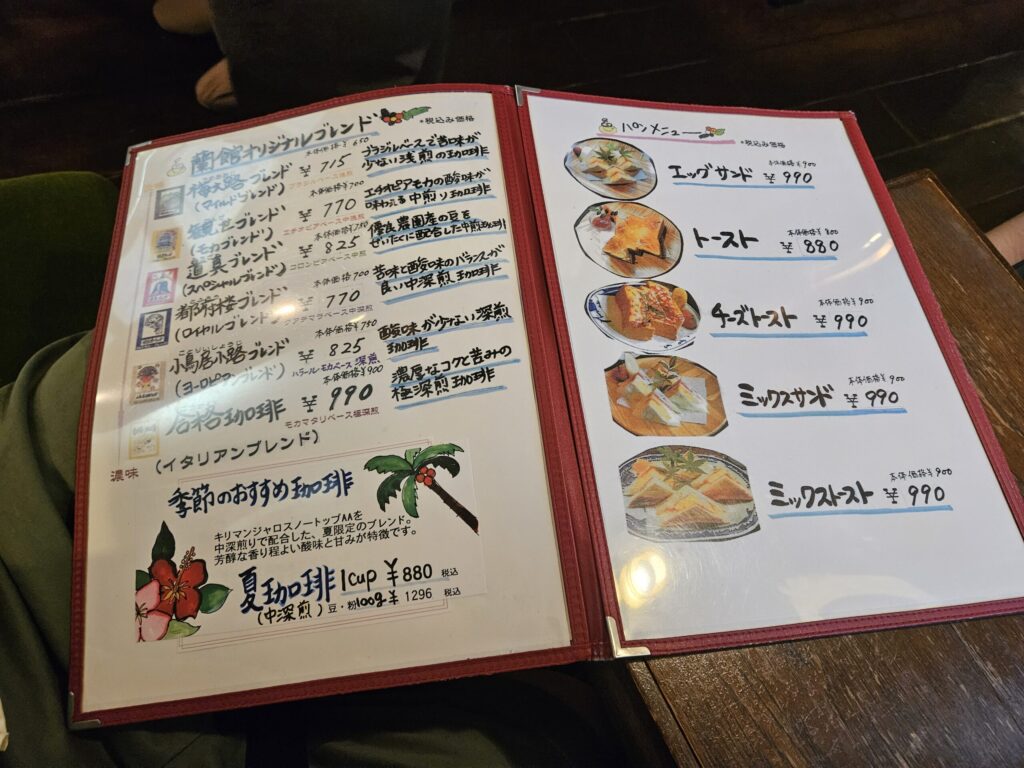 蘭館オリジナルブレンド
*税込み価格
本体価格¥650
梅大路ブレンド ¥715
(マイルドブレンド)
ブラジルベース浅煎
ブラジルベースで苦味が
少ない浅煎の珈琲
本体価格¥700
観世ブレンド ¥770
(モカブレンド)
エチオピアベース中浅煎
エチオピアモカの酸味が
味わえる中煎り珈琲
本体価格¥750
道真ブレンド ¥825
(スペシャルブレンド)
コロンビアベース中煎
優良農園産の豆を
ぜいたくに配合した中煎珈琲
本体価格700
都府楼ブレンド ¥770
(ロイヤルブレンド)
グァテマラベース中深煎
苦味と酸味のバランスが
良い中深煎珈琲
本体価格¥750
小鳥居小路ブレンド ¥825
(ヨーロピアンブレンド)
ハラール・モカベース 深煎
酸味が少ない深煎
珈琲
本体価格¥900
合格珈琲 ¥990
モカマタリベース極深煎
濃厚なコクと苦みの
極深煎珈琲
濃味
(イタリアンブレンド)
季節のおすすめ珈琲
キリマンジャロスノートップAAを
中深煎りで配合した、夏限定のブレンド。
芳醇な香り程よい酸味と甘みが特徴です。
夏珈琲 1cup ¥880 税込
(中深煎) 豆・粉100g¥ 1296 税込
パンメニュー
*税込み価格
本体価格¥900
エッグサンド ¥990
本体価格¥800
トースト ¥880
本体価格¥900
チーズトースト ¥990
本体価格¥900
ミックスサンド ¥990
本体価格¥900
ミックストースト ¥990